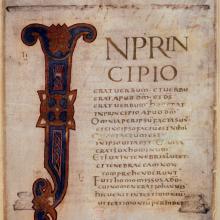 INPRIN
CIPIO
ERATUERBUM ETUERBU
ERATAPUDDM ETDS
ERATUERBUM HOCERAT
INPRINCIPIO APUDDM
OMNIAPERIPSUFACTASUNT
ETSINEIPSOFACTUESTNIHIL
QUODFACTUMEST
INIPSOUITAERAT ETUITA
ERATLUXHOMINUM
ETLUXINTENEBRISLUCET
ETTENEBRAEEAMNON
CONPREHENDERUNT
FUITHOMOMISSUSADO
CUINOMENERATIOHANNIS
HICUENITINTESTIMONIU